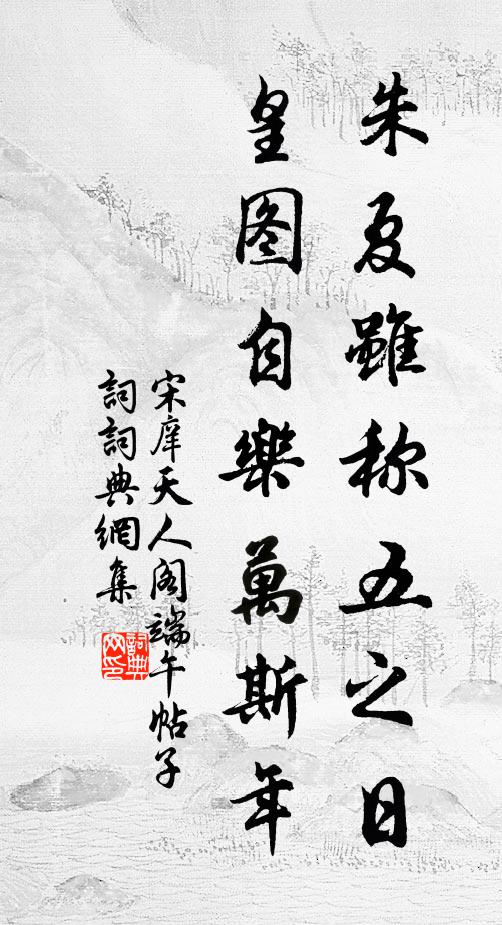 朱夏雖称五之日
皇图自樂萬斯年
宋庠天人阁端午帖子
詞詞典網集
詞典
网印